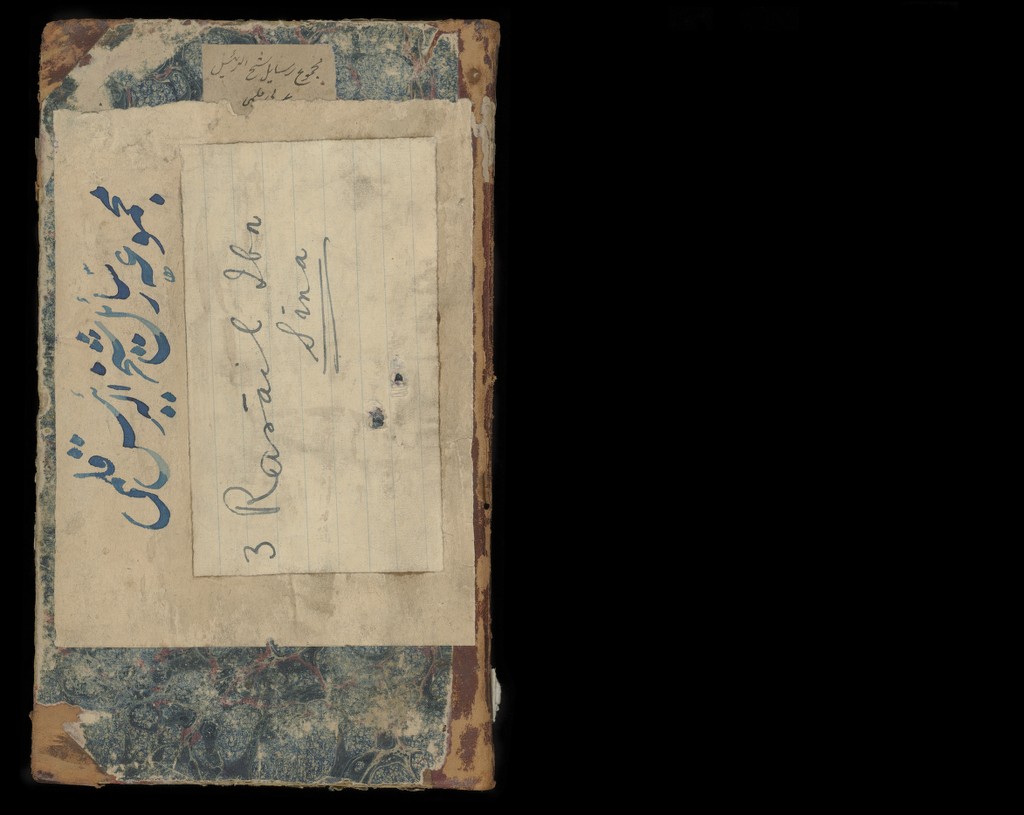 مجموع رسایل شیخ الرئیس
مجموعه رسائل شیخ الرئیس قلمی
3 Rasāil Ibn
Sina